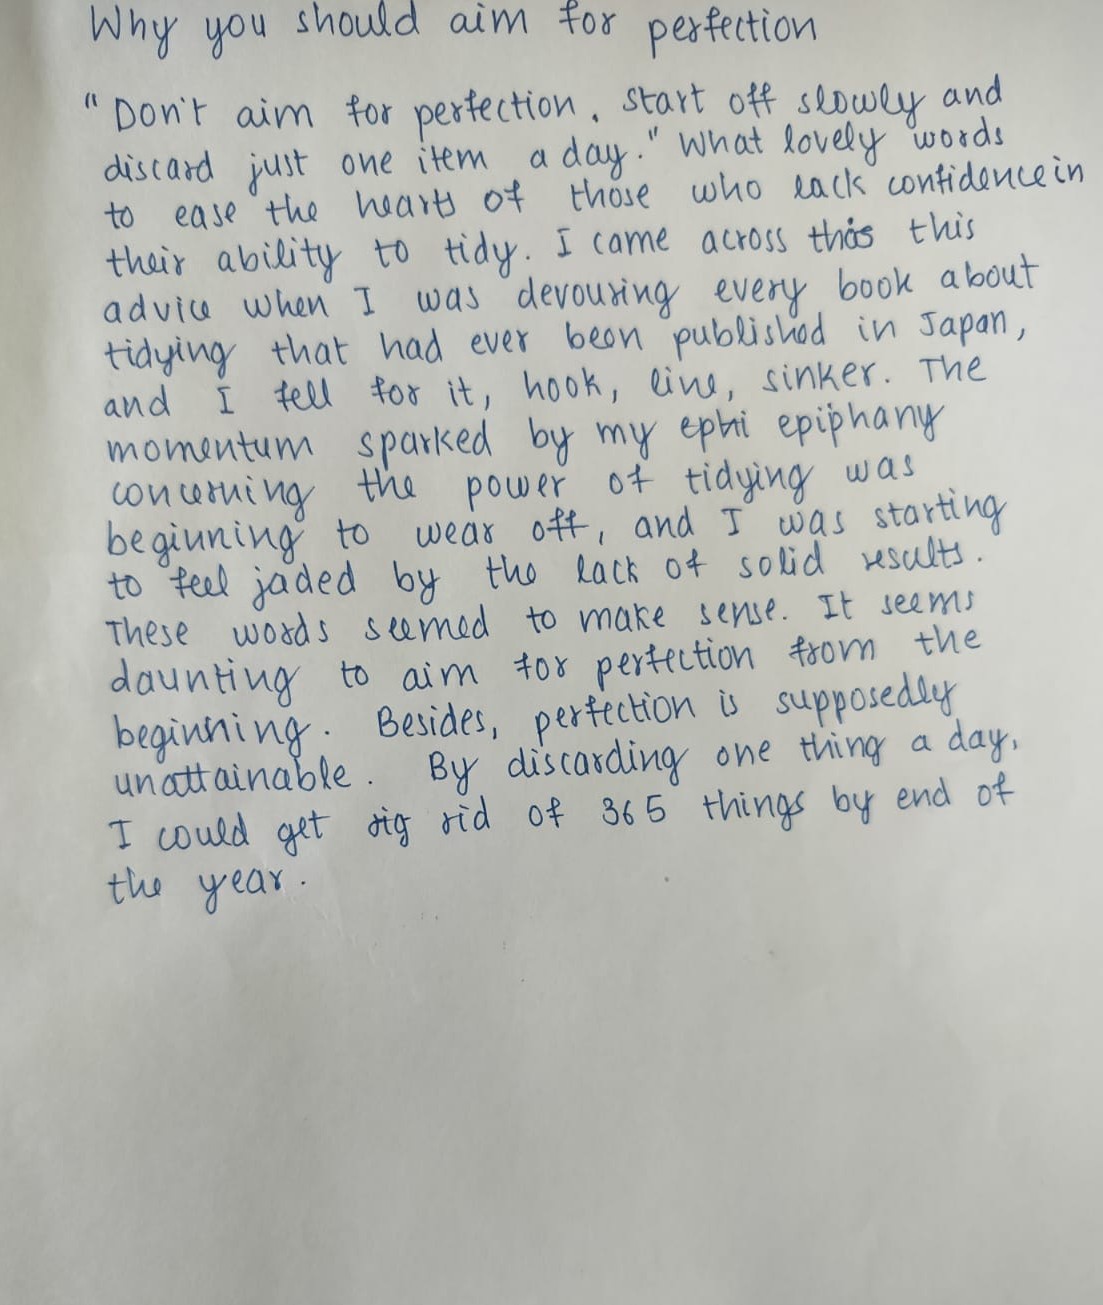 Why you should aim for perfection
"Don't aim for perfection. Start off slowly and
discard just one item a day." What lovely words
to ease the hearts of those who lack confidence in
their ability to tidy. I came across this this
advice when I was devouring every book about
tidying that had ever been published in Japan,
and I fell for it, hook, line, sinker. The
momentum sparked by my ephi epiphany
concerning the power of tidying was
beginning to wear off, and I was starting
to feel jaded by the lack of solid results.
These words seemed to make sense. It seems
daunting to aim for perfection from the
beginning. Besides, perfection is supposedly
unattainable. By discarding one thing a day,
I could get rig rid of 365 things by end of
the year.